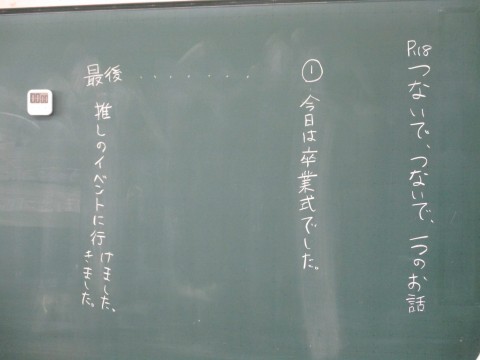 P.18 つないで、つないで、一つのお話
① 今日は卒業式でした。
・・・・・・・
最後 推しのイベントに行けました。
きました。